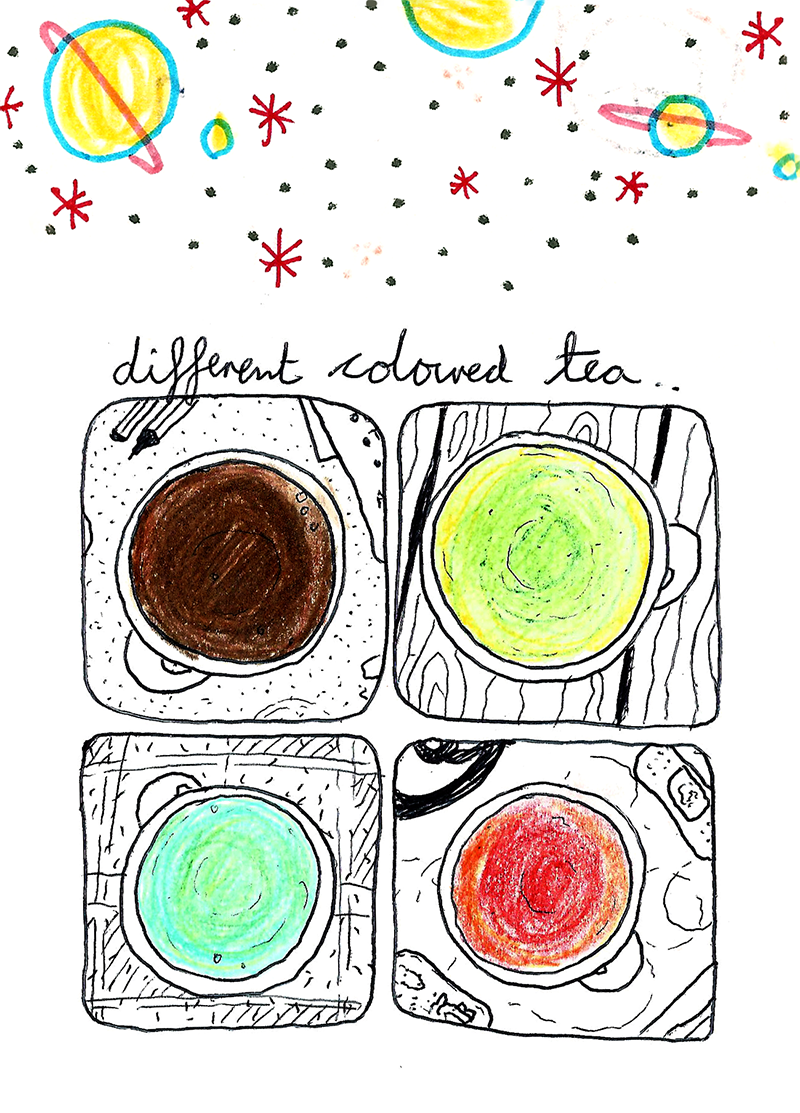 different coloured tea..